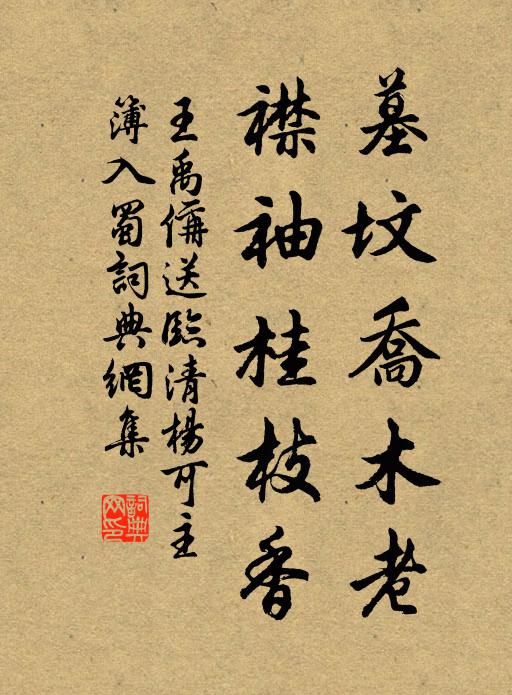 墓坟喬木老
襟袖桂枝香
王禹偁送臨清楊可主
簿入蜀詞典網集
詞典
网印